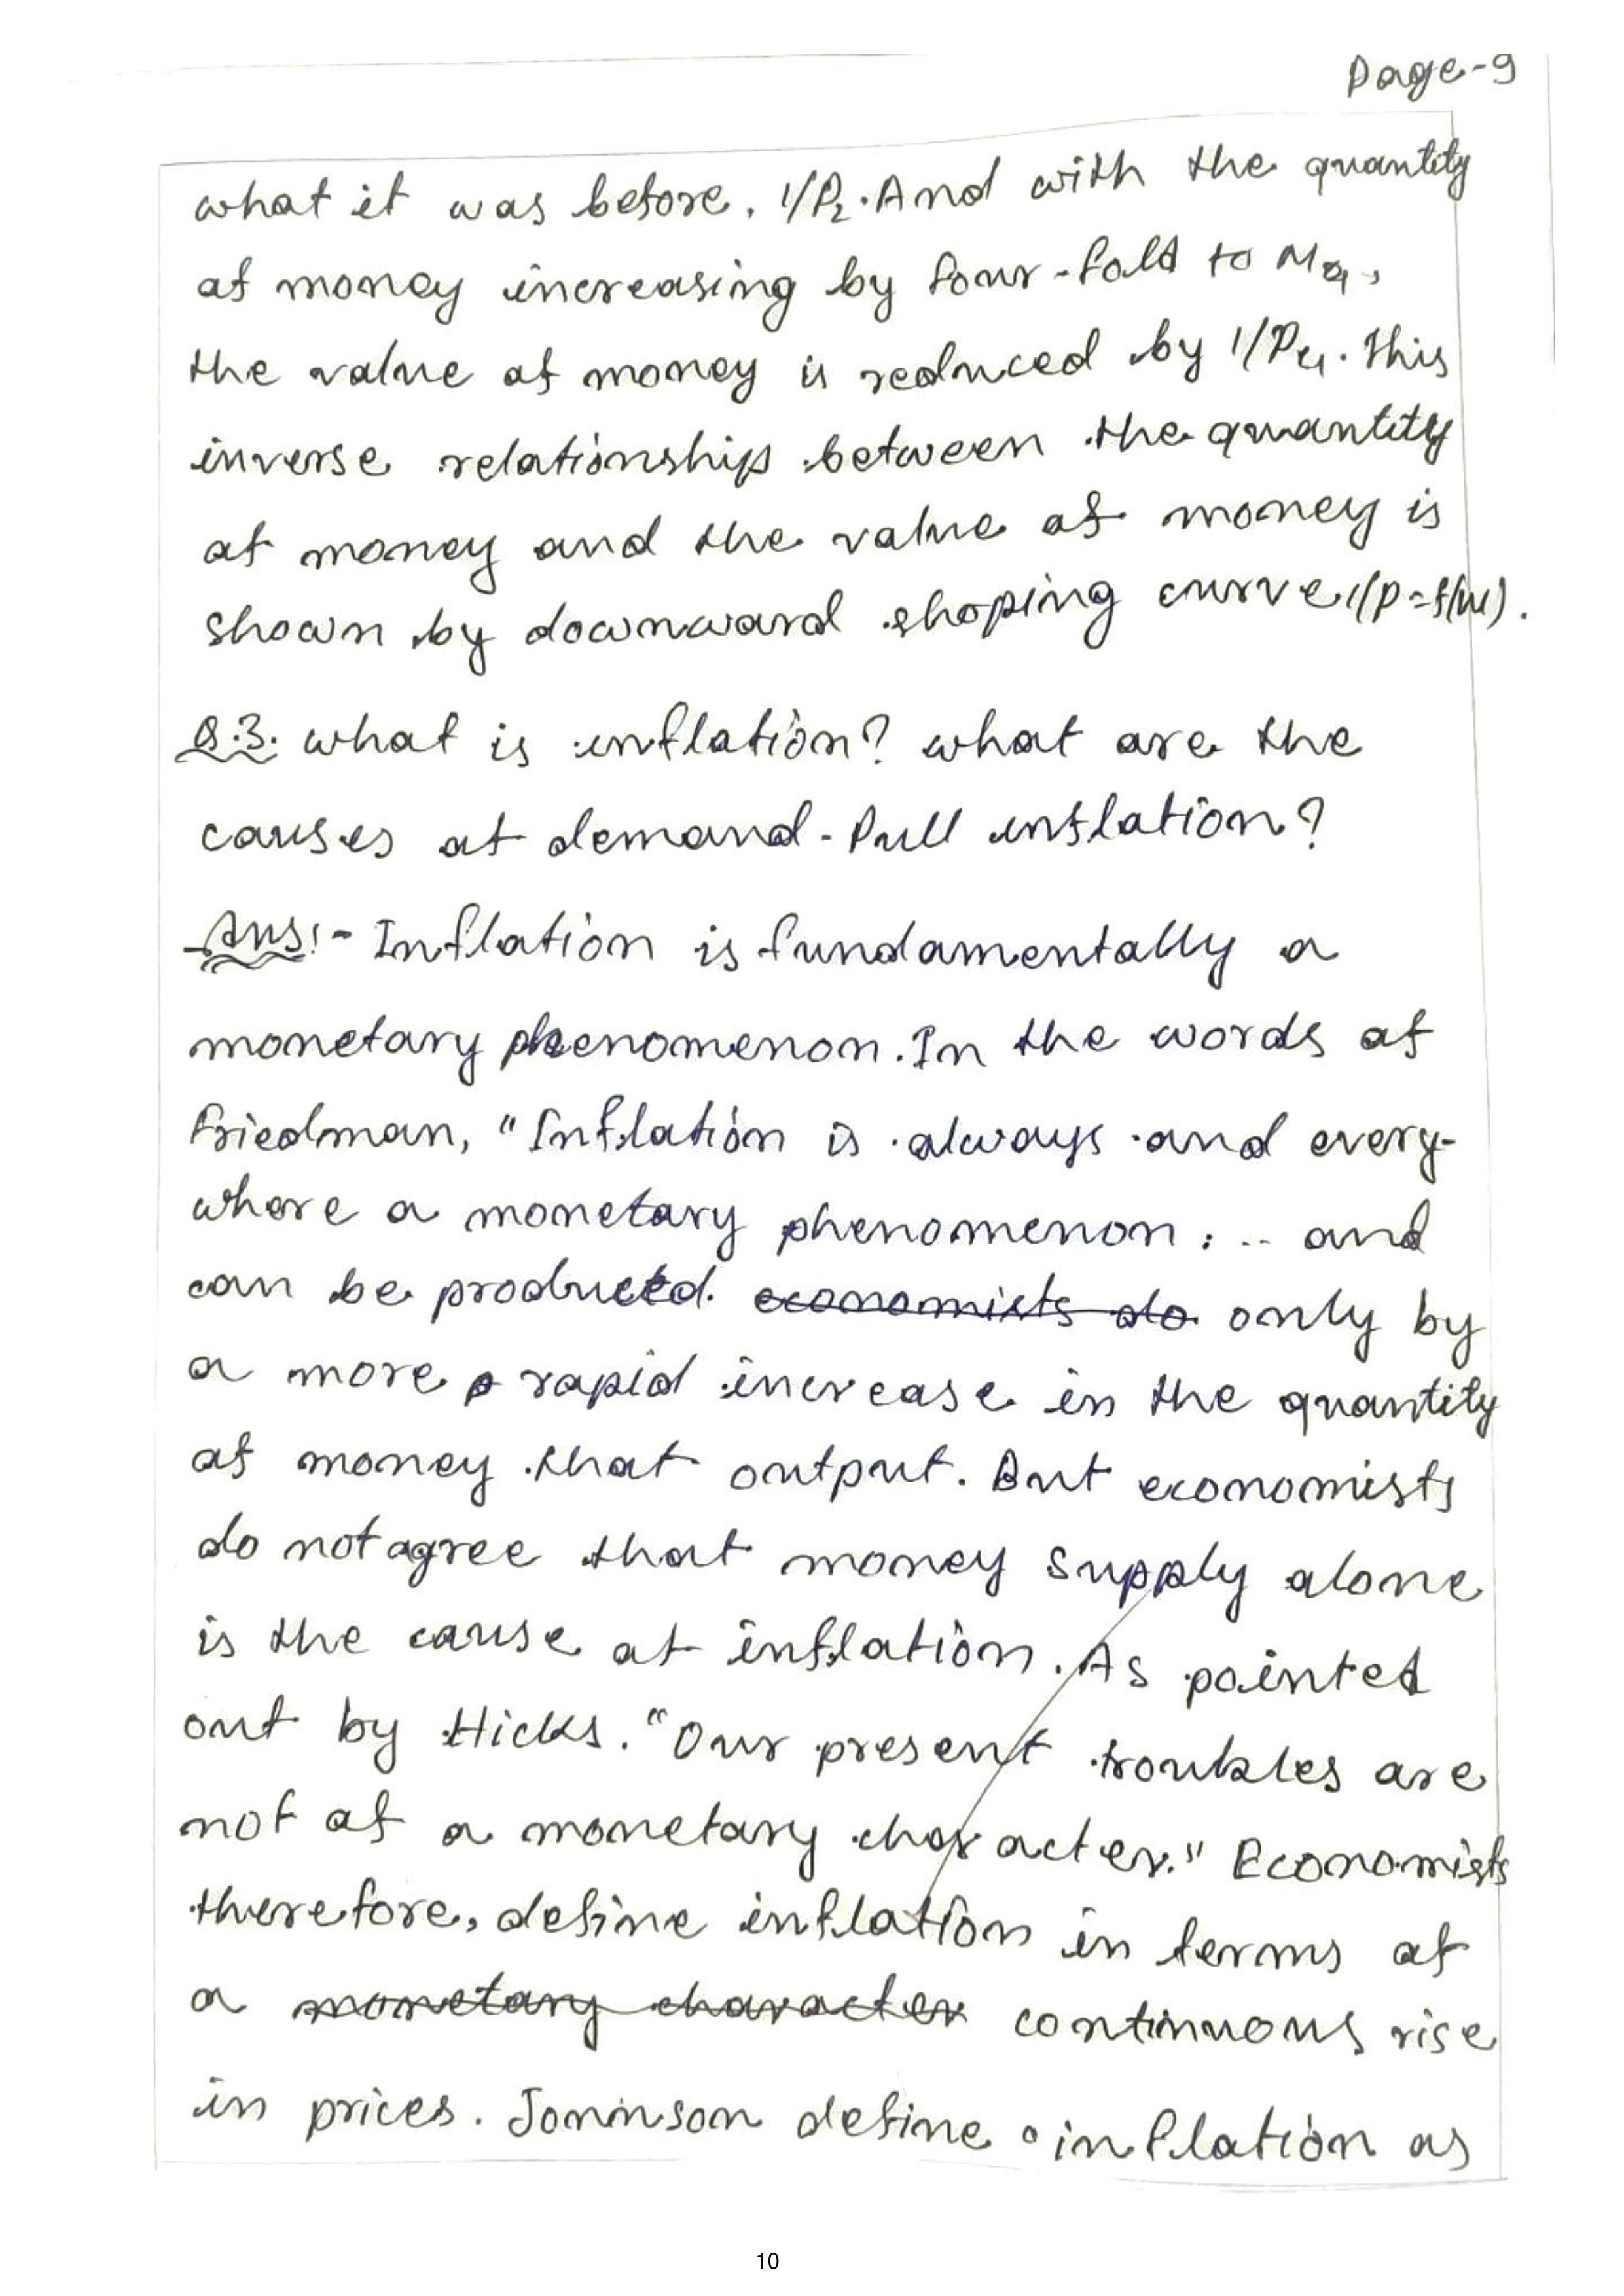 Page-9
what it was before. 1/P₂. And with the quantity
of money increasing by four-fold to M₄,
the value of money is reduced by 1/P₄. This
inverse relationship between the quantity
of money and the value of money is
shown by downward shoping curve 1/p=f(M).
Q.3. what is inflation? what are the
causes of demand-Pull inflation?
Ans:- Inflation is fundamentally a
monetary phenomenon. In the words of
Friedman, "Inflation is always and every-
where a monetary phenomenon : .. and
can be producted. economists do only by
a more rapid increase in the quantity
of money that output. But economists
do not agree that money supply alone
is the cause of inflation. As pointed
out by Hicks. "Our present troubles are
not of a monetary character." Economists
therefore, define inflation in terms of
a monetary character continuous rise
in prices. Jonnson define inflation as
10